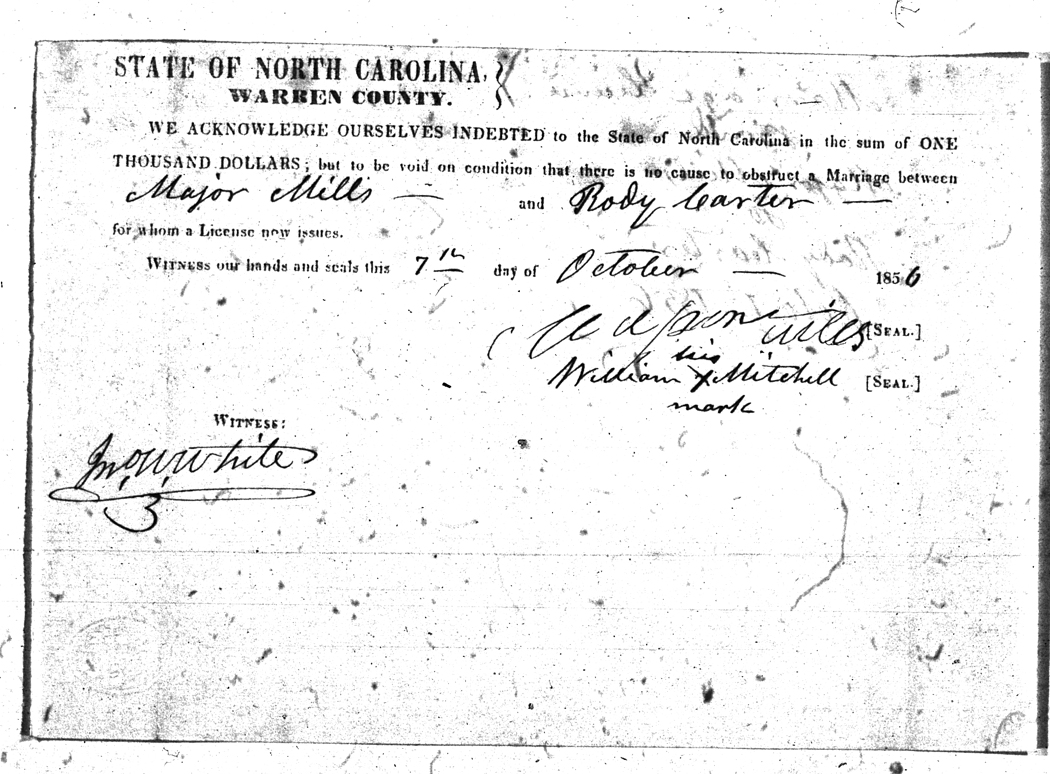 STATE OF NORTH CAROLINA,
WARREN COUNTY.
WE ACKNOWLEDGE OURSELVES INDEBTED to the State of North Carolina in the sum of ONE
THOUSAND DOLLARS; but to be void on condition that there is no cause to obstruct a Marriage between
Major Mills — and Rody Carter —
for whom a License now issues.
WITNESS our hands and seals this 7th day of October — 1856
[SEAL.]
his
William x Mitchell [SEAL.]
mark
WITNESS:
Jno. W. White